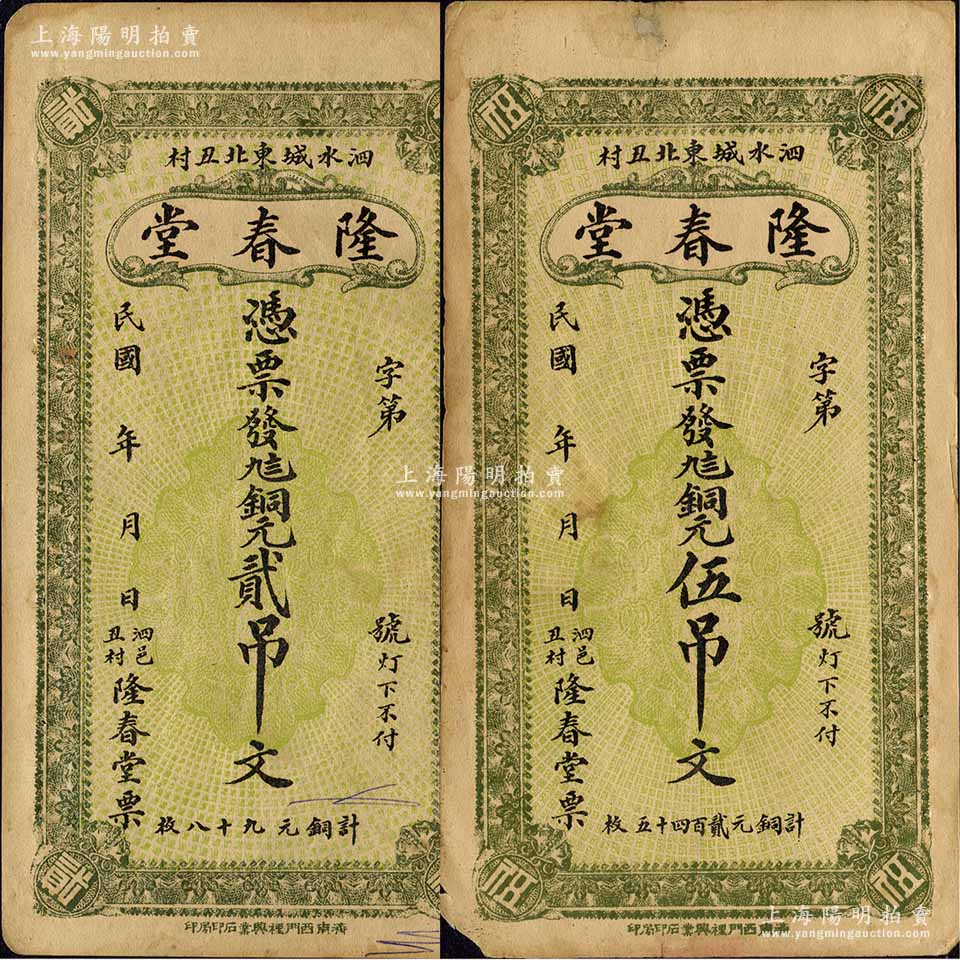 上海陽明拍賣
www.yangmingauction.com
貳
泗水城東北丑村
隆春堂
字第
號灯下不付
憑票發九二銅元貳吊文
民國 年 月 日
泗邑
丑村
隆春堂票
計銅元九十八枚
貳
濟南西門裡興業石印局印
伍
伍
泗水城東北丑村
隆春堂
字第
號灯下不付
憑票發銅元伍吊文
民國 年 月 日
泗邑
丑村
隆春堂票
計銅元貳百四十五枚
伍
伍
濟南西門裡興業石印局印
上海陽明拍賣
www.yangmingauction.com
上海陽明拍賣
www.yangmingauction.com